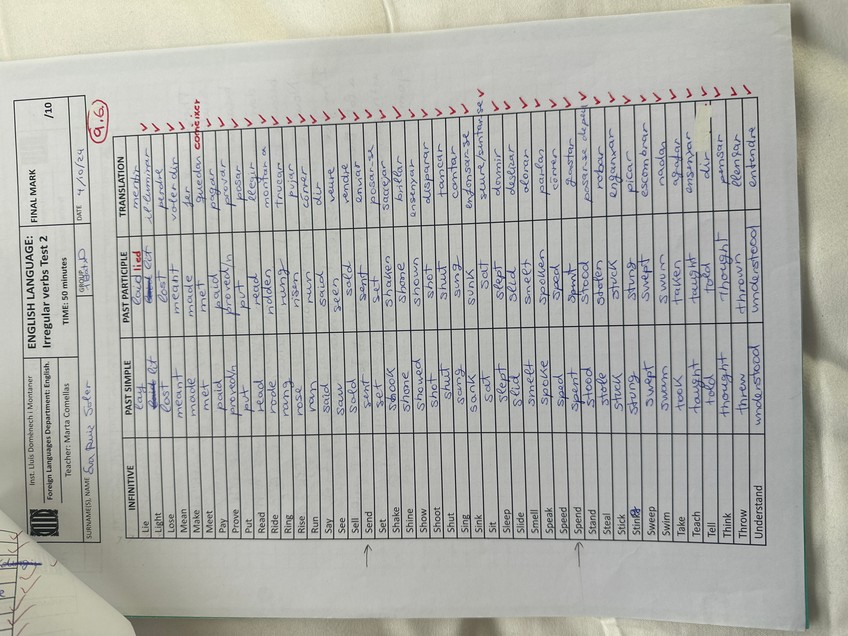 Inst. Lluís Domènech i Montaner
Foreign Languages Department: English.
Teacher: Marta Comellas
ENGLISH LANGUAGE:
Irregular verbs Test 2
TIME: 50 minutes
FINAL MARK
/10
SURNAME(S), NAME Eva Ruiz Soler
GROUP
DATE 4/10/24
9.6
INFINITIVE PAST SIMPLE PAST PARTICIPLE TRANSLATION
Lie lied mentir
Light lit lit il·luminar
Lose lost lost perdre
Mean meant meant voler dir
Make made made fer
Meet met met quedar conèixer
Pay paid paid pagar
Prove proved/n provar
Put put put posar
Read read read llegir
Ride rode ridden muntar a
Ring rang rung trucar
Rise rose risen pujar
Run ran run córrer
Say said said dir
See saw seen veure
Sell sold sold vendre
Send sent sent enviar
Set set set posar-se
Shake shook shaken sacsejar
Shine shone shone brillar
Show showed shown ensenyar
Shoot shot shot disparar
Shut shut shut tancar
Sing sang sung cantar
Sink sank sunk enfonsar-se
Sit sat sat seure/sentar-se
Sleep slept slept dormir
Slide slid slid deslizar
Smell smelt smelt olorar
Speak spoke spoken parlar
Speed sped sped córrer
Spend spent spent gastar
Stand stood stood posar-se
Steal stole stolen robar
Stick stuck stuck enganxar
Sting stung stung picar
Sweep swept swept escombrar
Swim swam swum nadar
Take took taken agafar
Teach taught taught ensenyar
Tell told told dir
Think thought thought pensar
Throw threw thrown llençar
Understand understood understood entendre